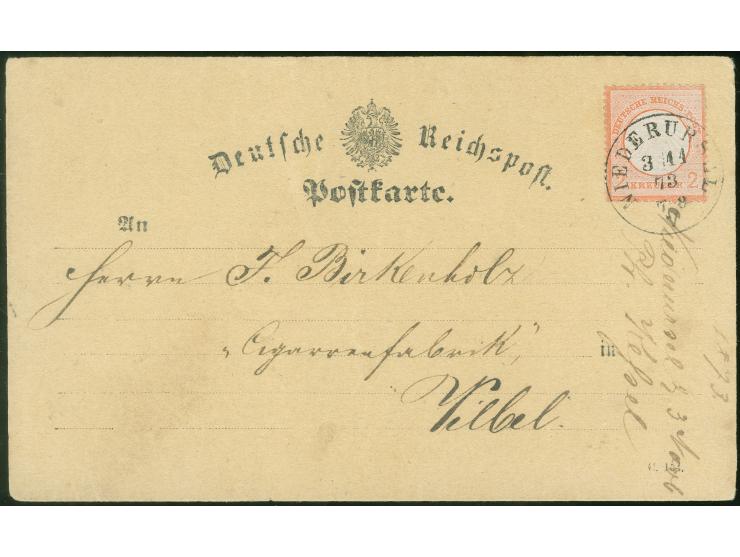 Deutsche Reichspost.
Postkarte.
DEUTSCHE REICHS-POST
KREUZER 2
NIEDERURSEL
3 11
73
An
Herrn F. Birkenholz
„Cigarrenfabrik",
in
Vilbel.
1873
3 Novb